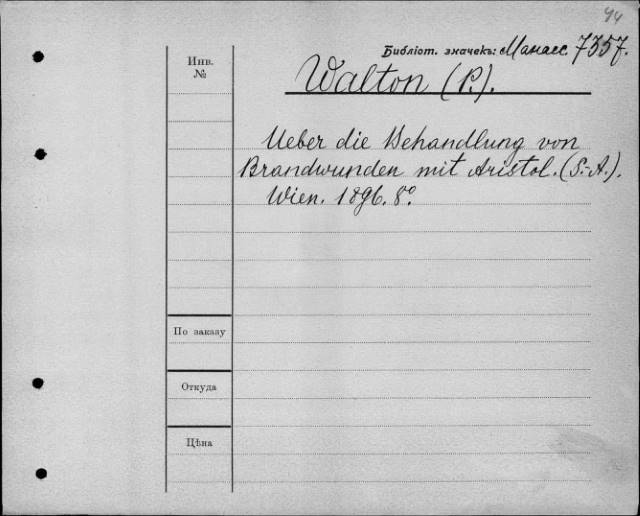 44
Библіот. значекъ: Манасс. 7357.
Инв.
№
Walton (P.).
Ueber die Behandlung von
Brandwunden mit Aristol. (S.-A.).
Wien. 1896. 8°.
По заказу
Откуда
Цѣна